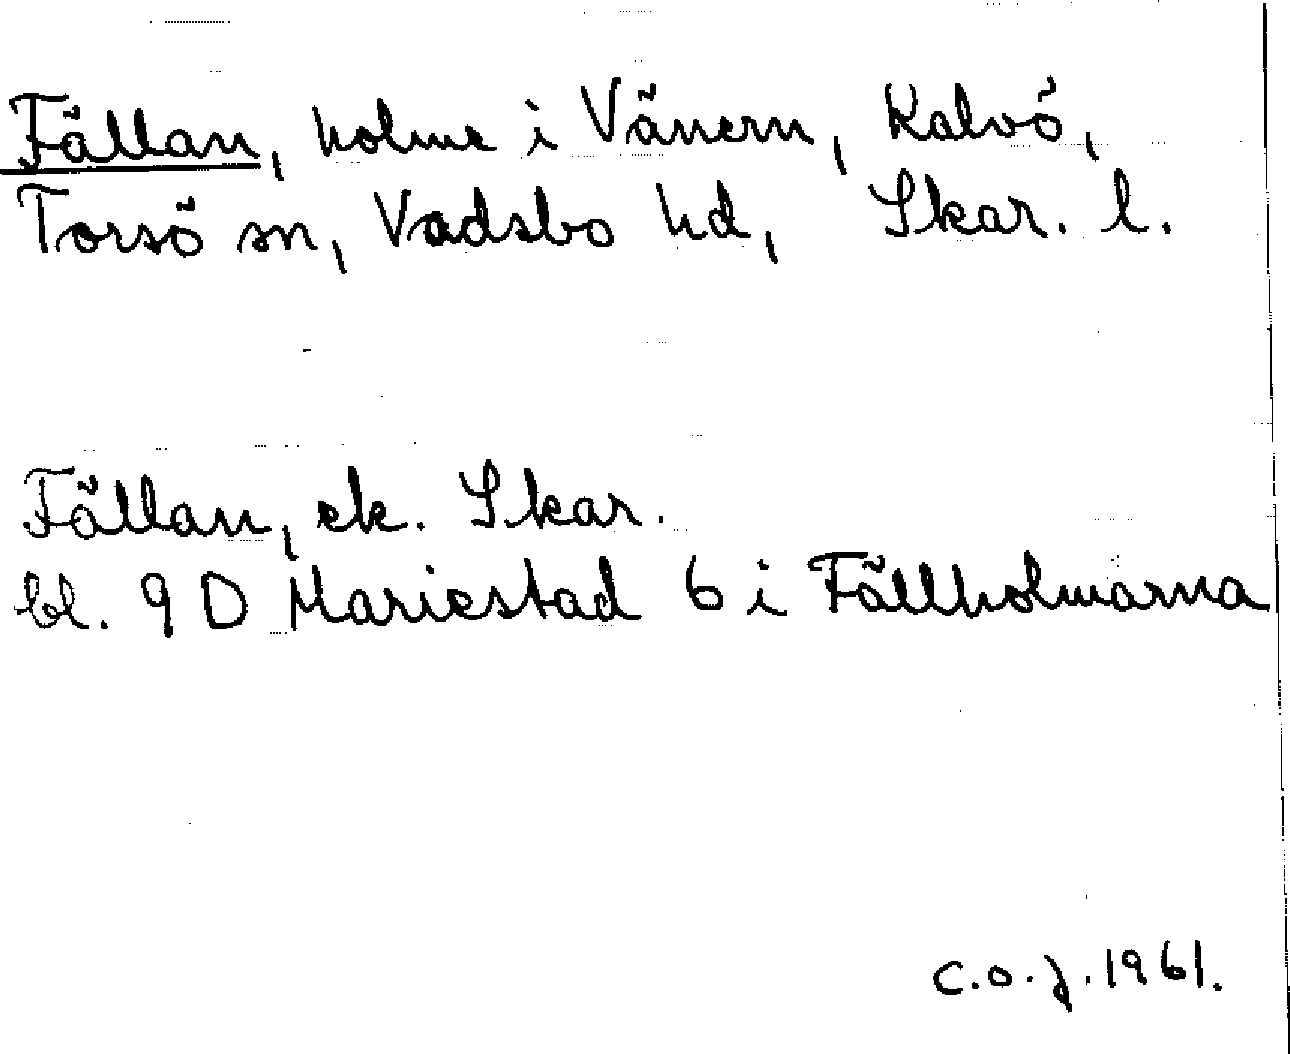 Fällan, holme i Vänern, Kalvö,
Torsö sn, Vadsbo hd, Skar. l.
Fällan, ek. Skar.
bl. 9 D Mariestad 6 i Fällholmarna
C.O.J. 1961.